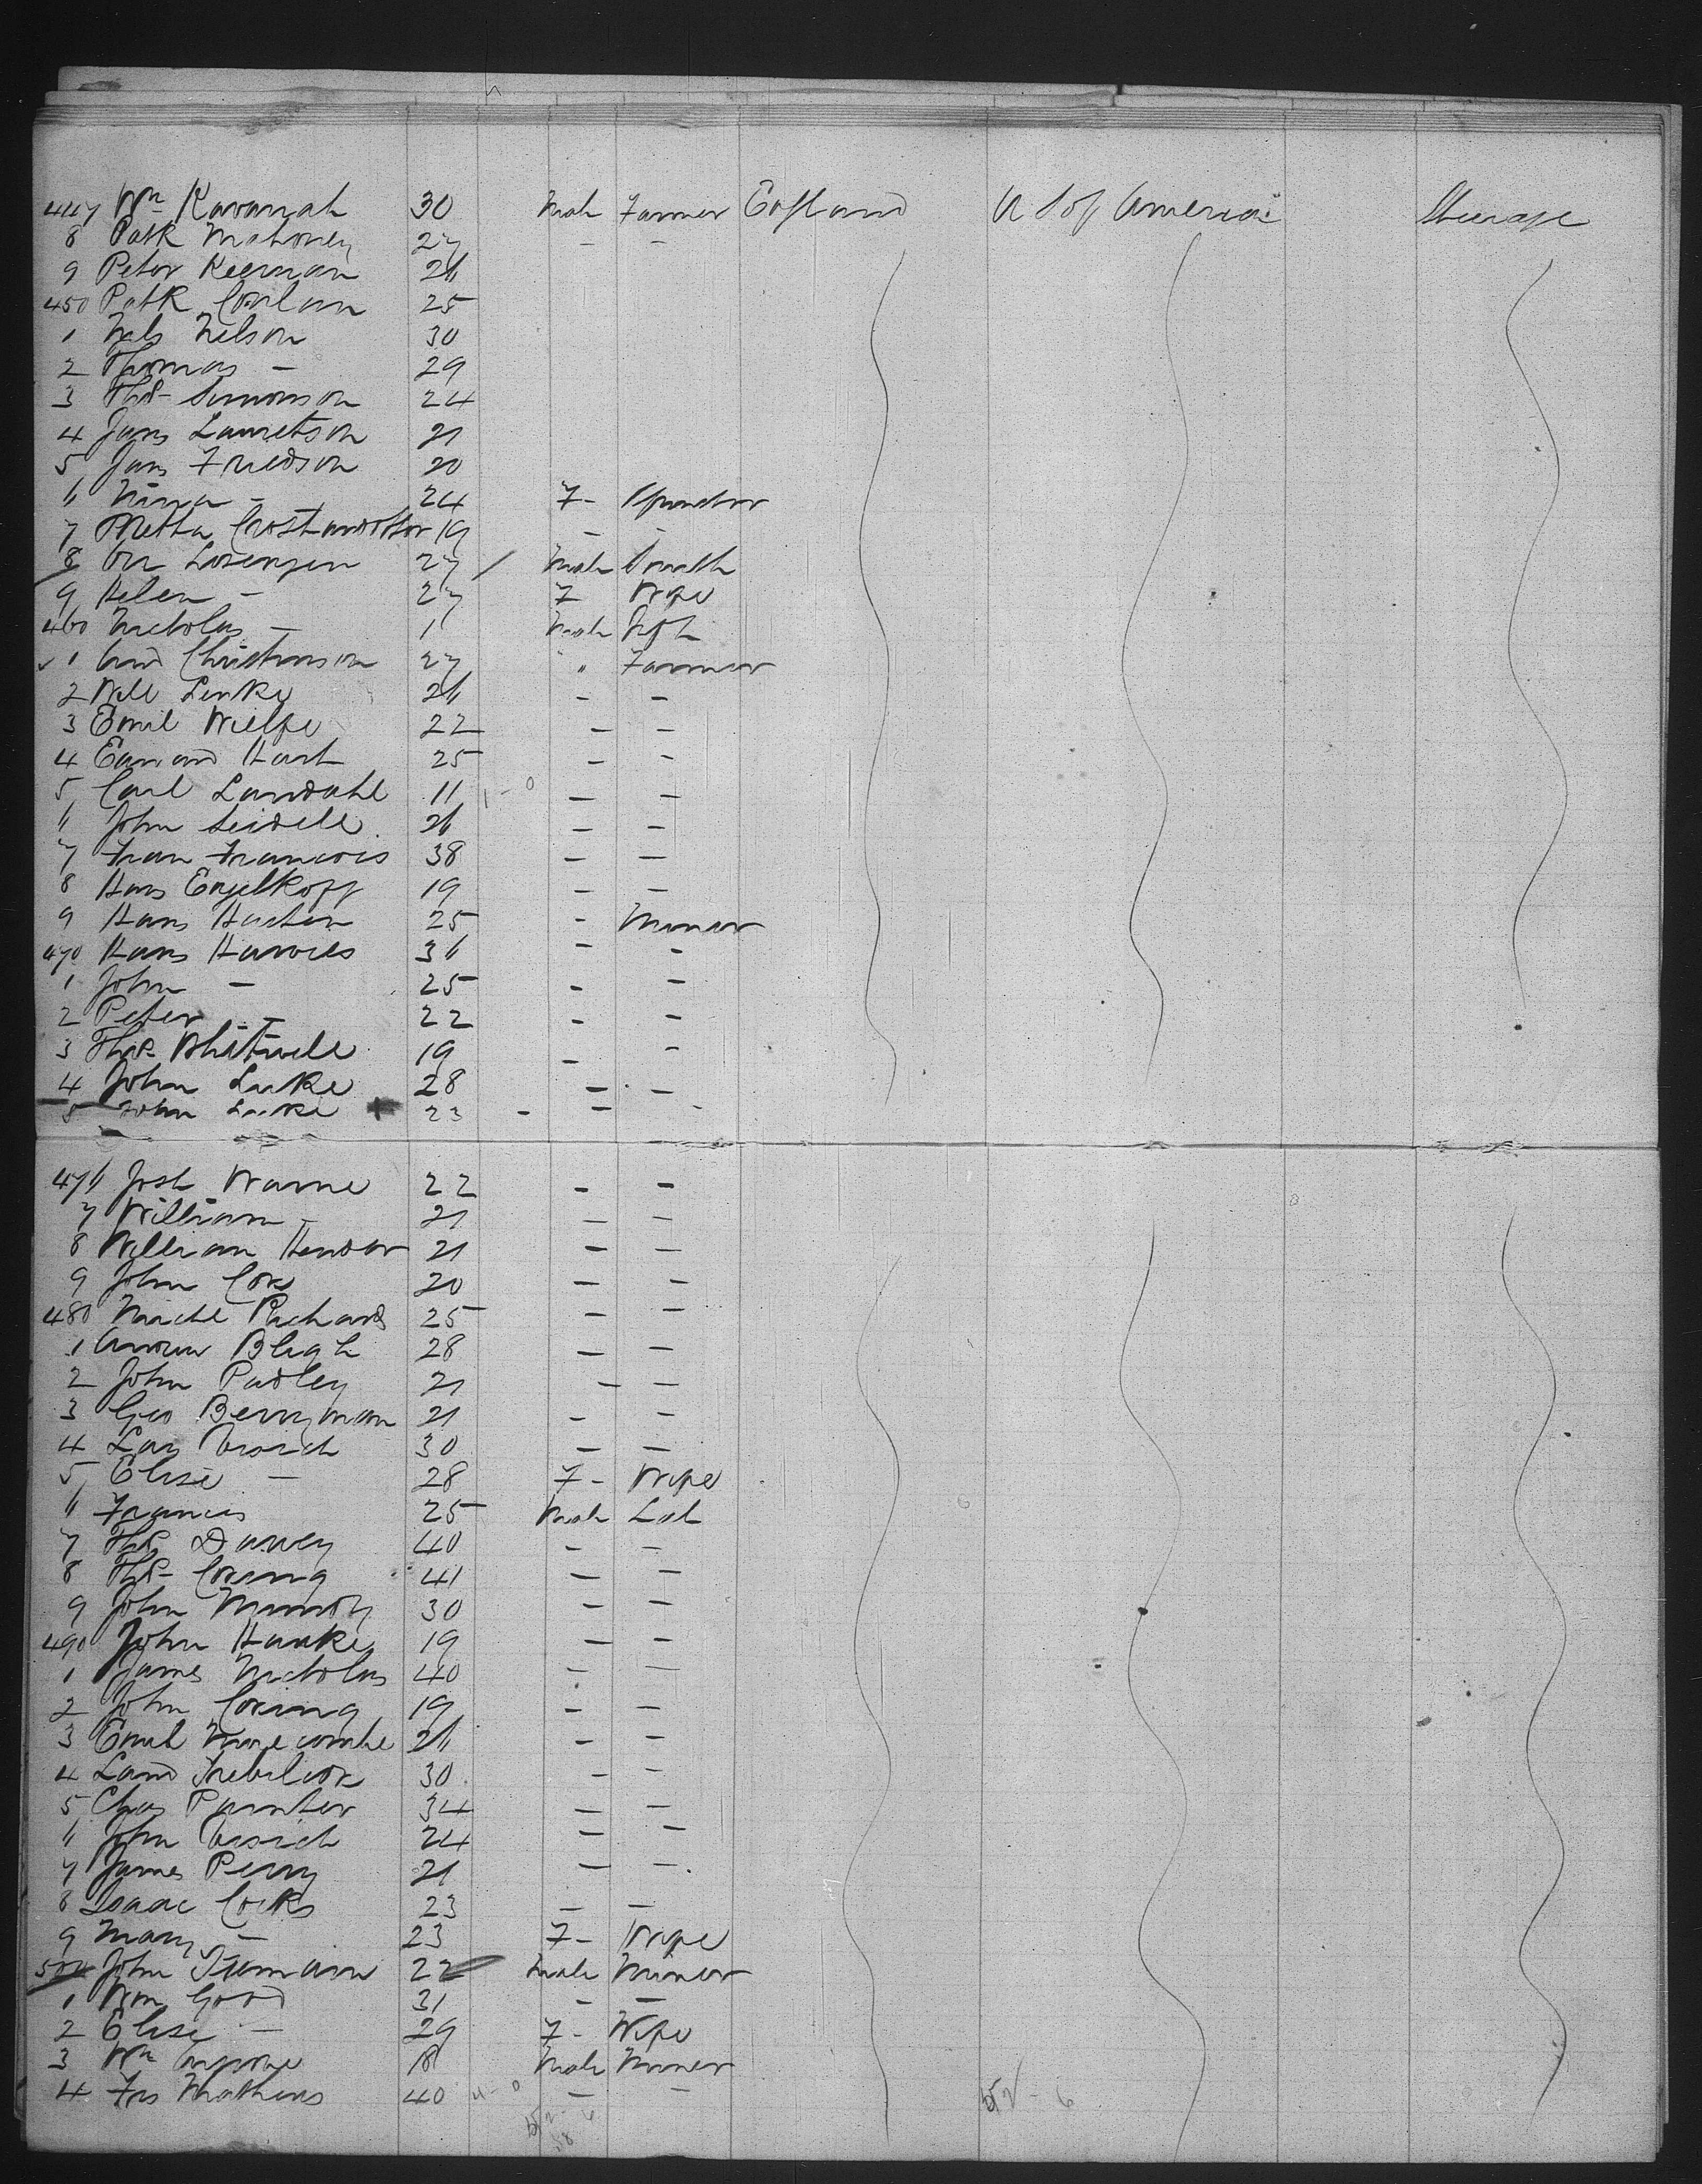 447 Wm Kavanah 30 Male Farmer England U S of America Steerage
8 Patk Mahoney 27 - -
9 Peter Keernan 26
450 Patk Conlan 25
1 Nels Nelson 30
2 Thomas - 29
3 Thos Simonson 24
4 Jans Lauretson 21
5 Jans Fredson 20
6 Nina - 24 F - Spinster
7 Metta 19 - -
8 Lorenzen 27 / Male Smith
9 Helen - 27 F Wife
460 Nicholas - 1 Male Inft
1 And Christenson 27 " Farmer
2 Will Linke 26 - -
3 Emil Wielfe 22 - -
4 Hart 25 - -
5 Carl Landahl 11 1-0 - -
6 John Seidell 26 - -
7 Fran Francois 38 - -
8 Hans Engelkopf 19 - -
9 Hans 25 - Miner
470 Hans Harries 36 - -
1 John - 25 - -
2 Peter - 22 - -
3 Thos Whitwell 19 - -
4 John Luke 28 - -
5 John Luke 23 - - -
476 Josh Warne 22 - -
7 William - 21 - -
8 William Hendar 21 - -
9 John Cox 20 - -
480 Michl Richards 25 - -
1 Andrew Bligh 28 - -
2 John Padley 21 - -
3 Geo Berryman 21 - -
4 30 - -
5 Elise - 28 F - Wife
6 Francis 25 Male Lab
7 Thos Davey 40 - -
8 Thos Coring 41 - -
9 John Mundy 30 - -
490 John Hawke 19 - -
1 James Nicholas 40 - -
2 John Coring 19 - -
3 26 - -
4 Trebilcox 30 - -
5 Chas Painter 34 - -
6 John 24 - -
7 James Perry 21 - -
8 Isaac Cocks 23 - -
9 Mary - 23 F - Wife
500 John 22 Male Miner
1 Wm Good 31 - -
2 Elise - 29 F - Wife
3 Wm 18 Male Miner
4 Frs Mathews 40 4-0 - -
52-6